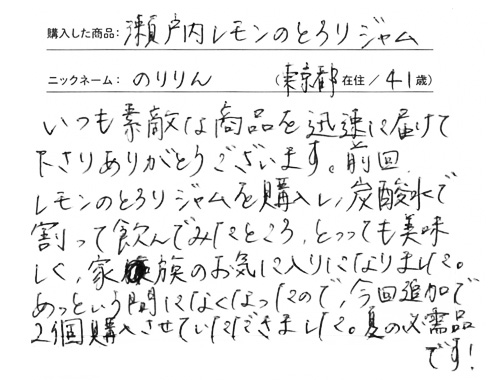 購入した商品: 瀬戸内レモンのとろりジャム
ニックネーム: のりりん (東京都在住/41歳)
いつも素敵な商品を迅速に届けて
下さりありがとうございます。前回
レモンのとろりジャムを購入し、炭酸水で
割って飲んでみたところ、とっっても美味
しく、家族のお気に入りになりました。
あっという間になくなったので、今回追加で
2個購入させていただきました。夏の必需品
です!